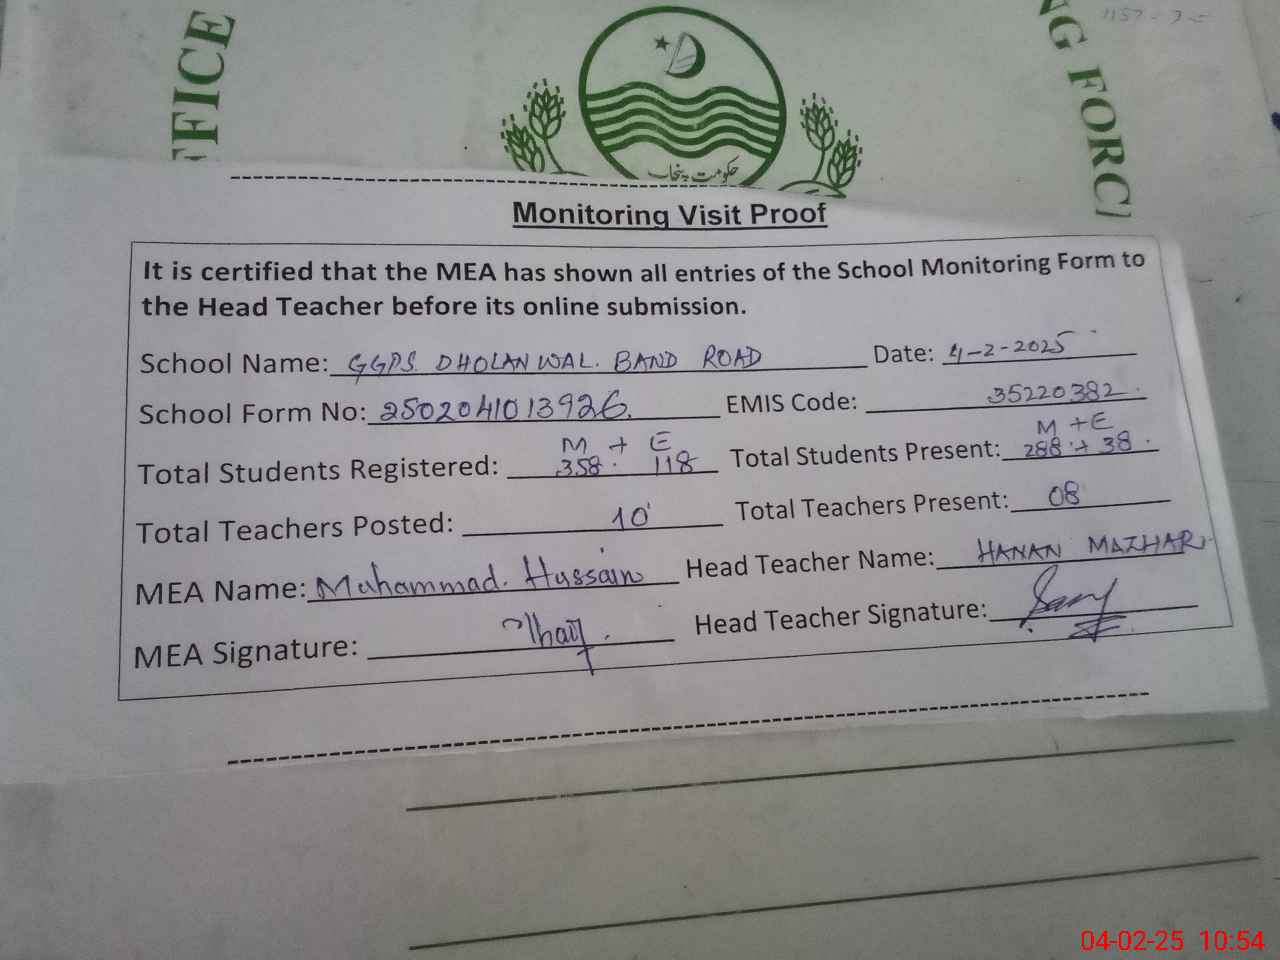 FFICE
NG FORC
حکومت پنجاب
Monitoring Visit Proof
It is certified that the MEA has shown all entries of the School Monitoring Form to
the Head Teacher before its online submission.
School Name: GGPS DHOLANWAL. BAND ROAD Date: 4-2-2025
School Form No: 2502041013926. EMIS Code: 35220382.
M + E M + E
Total Students Registered: 358. 118 Total Students Present: 288 + 38.
Total Teachers Posted: 10 Total Teachers Present: 08
MEA Name: Muhammad. Hussain Head Teacher Name: HANAN MAZHAR
MEA Signature: Head Teacher Signature:
04-02-25 10:54